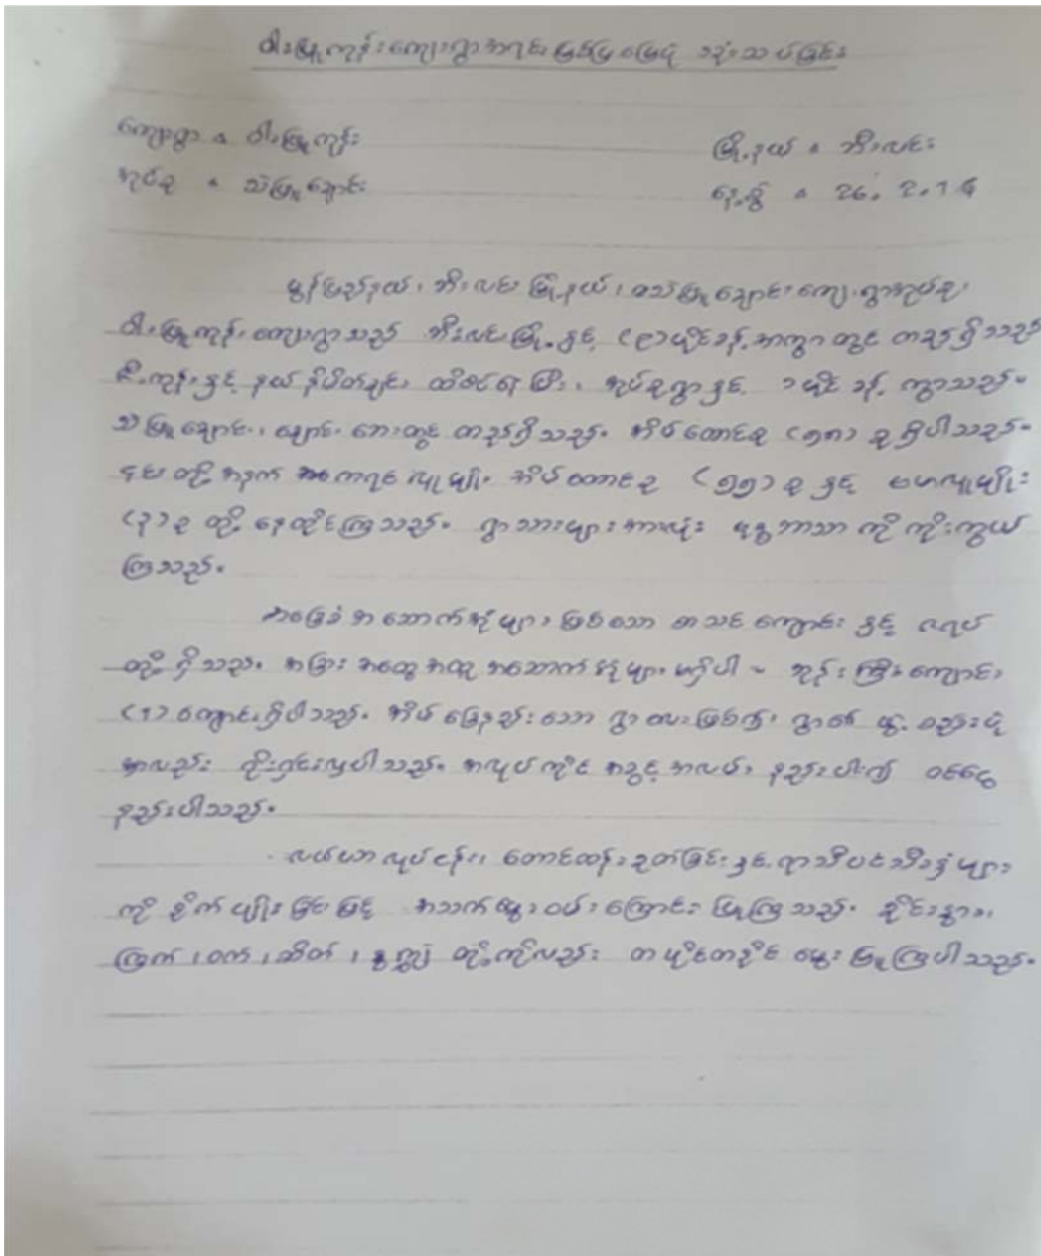 ဝါးဖြူကုန်းကျေးရွာအရင်းမြစ်ပြမြေပုံ သုံးသပ်ခြင်း
ကျေးရွာ - ဝါးဖြူကုန်း
မြို့နယ် - ဘီးလင်း
အုပ်စု - သဲဖြူချောင်း
နေ့စွဲ - 26. 2. 14
မွန်ပြည်နယ်၊ ဘီးလင်းမြို့နယ်၊ သဲဖြူချောင်းကျေးရွာအုပ်စု၊
ဝါးဖြူကုန်းကျေးရွာသည် ဘီးလင်းမြို့နှင့် (၉)မိုင်ခန့်အကွာတွင် တည်ရှိသည်
ဇီးကုန်းနှင့် နယ်နိမိတ်ချင်း ထိစပ်နေပြီး၊ အုပ်စုရွာနှင့် ၁ မိုင်ခန့် ကွာသည်။
သဲဖြူချောင်း၊ ချောင်းဘေးတွင် တည်ရှိသည်။ အိမ်ထောင်စု (၅၈) စု ရှိပါသည်။
၎င်းတို့အနက် ကရင်လူမျိုး အိမ်ထောင်စု (၅၅) စု နှင့် ဗမာလူမျိုး
(၃) စု တို့ နေထိုင်ကြသည်။ ရွာသားများအားလုံး ဗုဒ္ဓဘာသာ ကို ကိုးကွယ်
ကြသည်။
အခြေခံအဆောက်အုံများ ဖြစ်သော စာသင်ကျောင်း နှင့် ဇရပ်
တို့ ရှိသည်။ အခြား အထွေအထူး အဆောက်အုံများ မရှိပါ - ဘုန်းကြီးကျောင်း
(၁) ကျောင်းရှိပါသည်။ အိမ်ခြေနည်းသော ရွာလေးဖြစ်၍ ရွာ၏ ဖွဲ့စည်းပုံ
မှာလည်း ရိုးရှင်းလှပါသည်။ အလုပ်ကိုင် အခွင့်အလမ်း နည်းပါး၍ ဝင်ငွေ
နည်းပါသည်။
လယ်ယာလုပ်ငန်း၊ တောင်ထန်းခုတ်ခြင်းနှင့် ရာသီပင်သီးနှံများ
ကို စိုက်ပျိုးခြင်းဖြင့် အသက်မွေးဝမ်းကြောင်း ပြုကြသည်။ ခိုင်းနွား၊
ကြက်၊ ဝက်၊ ဆိတ်၊ နွား၊ ကျွဲ တို့ကိုလည်း တပိုင်တနိုင် မွေးမြူကြပါသည်။